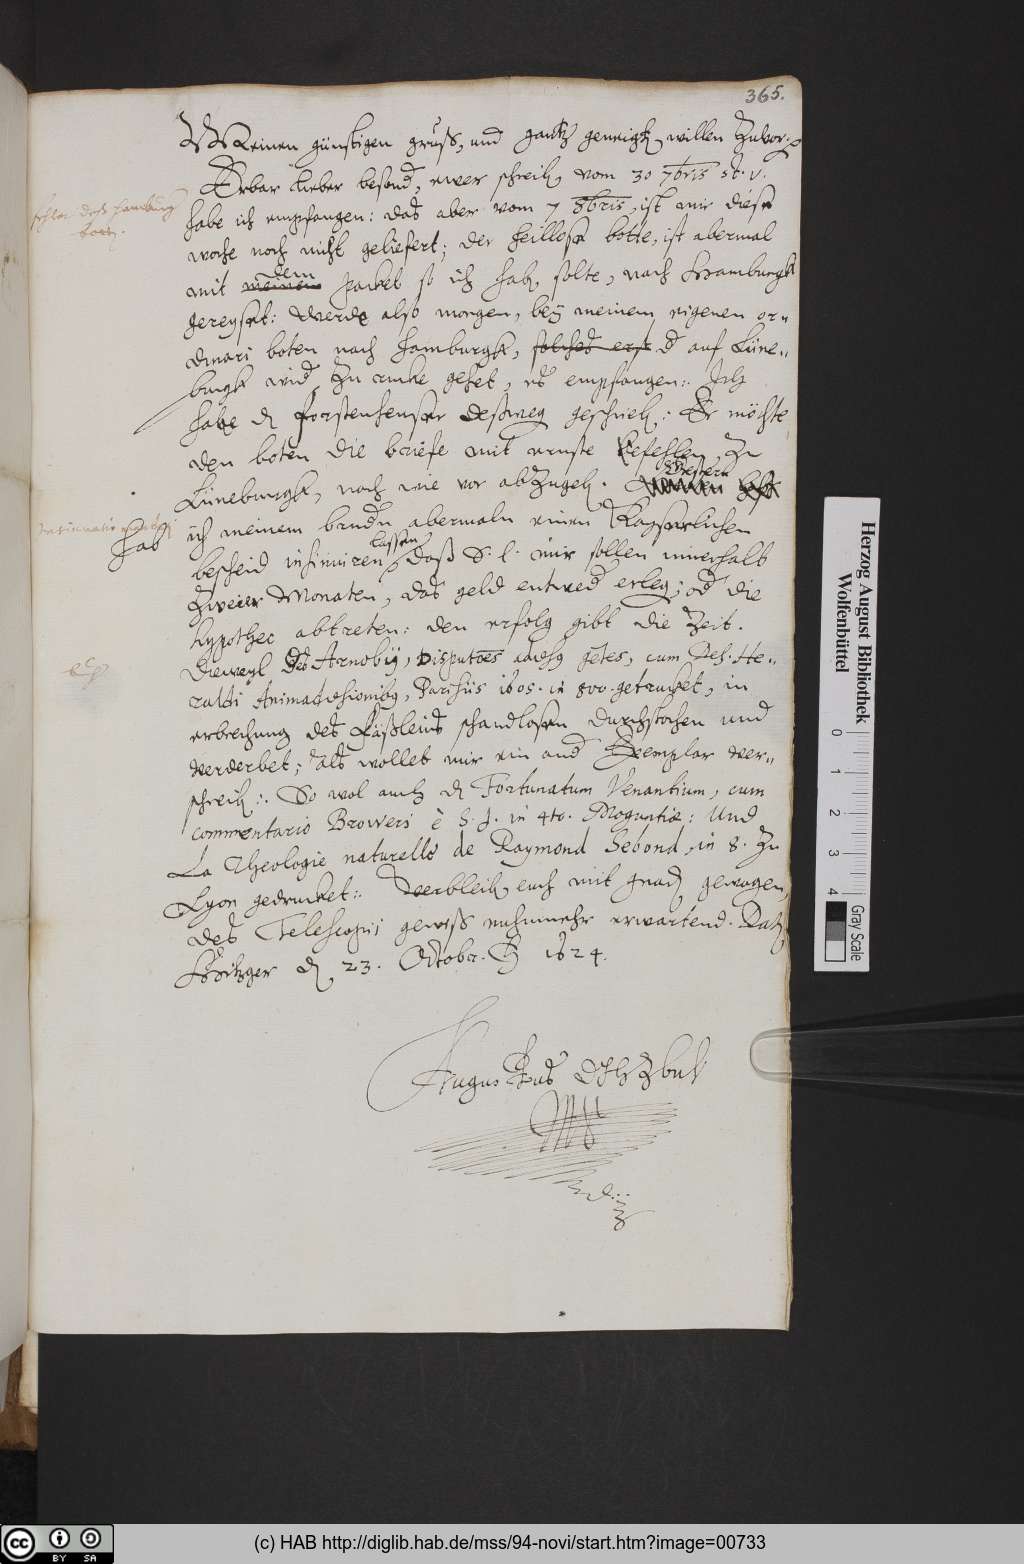 365.
Meinen günstigen gruß, und gantz geneigten willen zuvor:
Erbar lieber besonder, ewer schreiben vom 30 7bris st. v.
schlos des hamburg
boten.
habe ich empfangen: das aber vom 7 8bris, ist mir diese
woche noch nicht geliefert; der heillose botte, ist abermal
dem
mit meinem Packet so ich haben solte, nach Hamburgk
gereyset: Werde also morgen, bey meinem eigenen or=
dinari boten nach Hamburgk, solches erst d auf Lüne=
burgk wider zu rucke gehet, es empfangen: Ich
habe dem forstenheuser deßweg geschrieben: Er möchte
den boten die briefe mit ernste befehlen, zu
Lüneburgk, nach wie vor abzugeben.
Gestern
Hab
ich meinem brudern abermaln einen Kayserlichen
lassen
bescheid insinuiren, daß S. L. mir sollen innerhalb
zweier Monaten, das geld entweder erlegen; oder die
hypothec abtreten: den erfolg gibt die Zeit.
Dieweyl des Arnobij, Disputões adversus gētes, cum Des. He=
raldi Animadversionibus, Parisiis 1605. in 8vo. getrucket, in
erbrechung des Fäßleins schandlosen durchstochen und
verderbet; als wollet mir ein ander Exemplar ver=
schreiben: So wol auch den Fortunatum Venantium, cum
commentario Broweri è S. J. in 4to. Moguntiæ: Und
La Theologie naturelle de Raymond Sebond, in 8. zu
Lyon gedrucket: Verbleiben euch mit gnaden gewogen,
des Telescopii gewiss nuhnmehr erwartend. Datum
Hitzger den 23. Octobr. 1624.
Augustus HZBuL
Mpp
(c) HAB http://diglib.hab.de/mss/94-novi/start.htm?image=00733
Herzog August Bibliothek
Wolfenbüttel
0 1 2 3 4
Gray Scale
cc BY SA